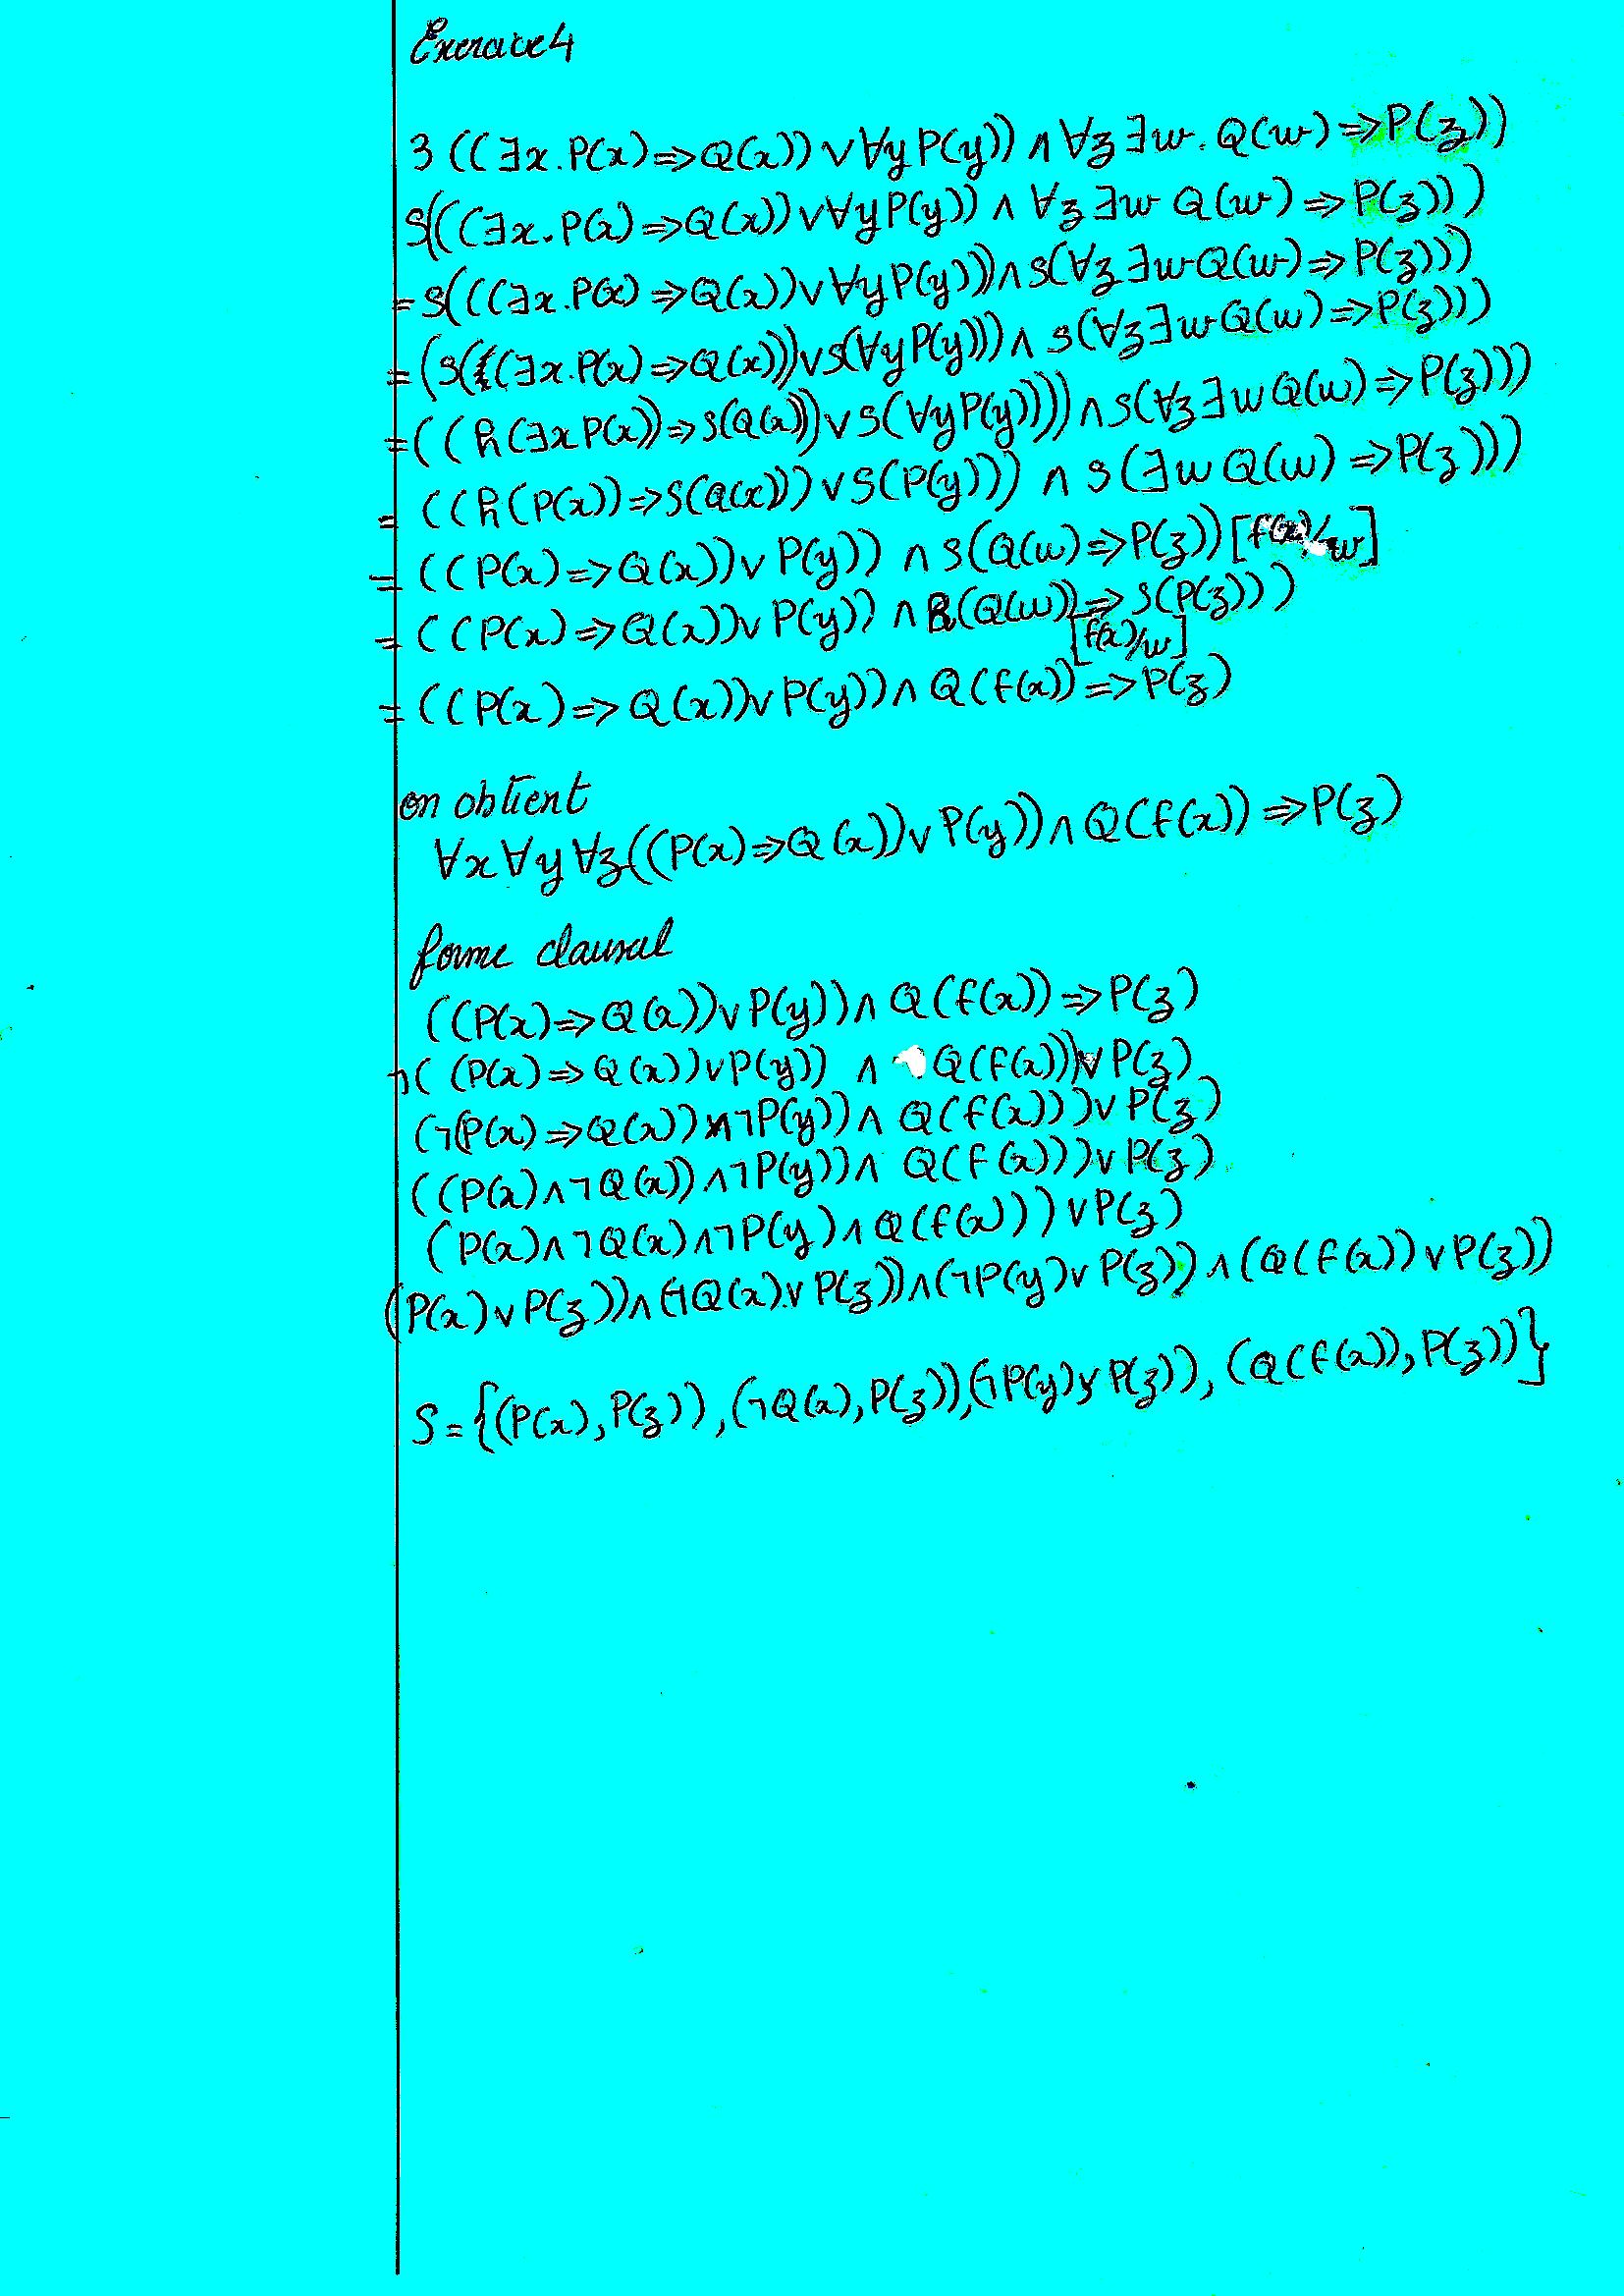 Exercice 4
3 ((∃x.P(x)⇒Q(x))∨∀y P(y)) ∧ ∀z ∃w. Q(w)⇒P(z))
S(((∃x.P(x)⇒Q(x))∨∀yP(y)) ∧ ∀z ∃w Q(w)⇒P(z)))
=S(((∃x.P(x)⇒Q(x))∨∀yP(y)))∧S(∀z ∃w Q(w)⇒P(z)))
=(S(((∃x.P(x)⇒Q(x)))∨S(∀yP(y)))∧ S(∀z∃wQ(w)⇒P(z)))
=((h(∃xP(x))⇒S(Q(x)))∨S(∀yP(y))))∧S(∀z∃wQ(w)⇒P(z)))
= ((h(P(x))⇒S(Q(x)))∨S(P(y))) ∧ S(∃wQ(w)⇒P(z)))
= ((P(x)⇒Q(x))∨P(y)) ∧ S(Q(w)⇒P(z))[f(x)/w]
= ((P(x)⇒Q(x))∨P(y)) ∧ h(Q(w))⇒S(P(z)))
[f(x)/w]
= ((P(x)⇒Q(x))∨P(y))∧Q(f(x))⇒P(z)
on obtient
∀x∀y∀z((P(x)⇒Q(x))∨P(y))∧Q(f(x))⇒P(z)
forme clausal
((P(x)⇒Q(x))∨P(y))∧Q(f(x))⇒P(z)
¬((P(x)⇒Q(x))∨P(y)) ∧ Q(f(x)))∨P(z)
(¬(P(x)⇒Q(x))∧¬P(y))∧ Q(f(x)))∨P(z)
((P(x)∧¬Q(x))∧¬P(y))∧ Q(f(x)))∨P(z)
(P(x)∧¬Q(x)∧¬P(y)∧Q(f(x)))∨P(z)
(P(x)∨P(z))∧(¬Q(x)∨P(z))∧(¬P(y)∨P(z))∧(Q(f(x))∨P(z))
S={(P(x),P(z)),(¬Q(x),P(z)),(¬P(y)∨P(z)),(Q(f(x)),P(z))}